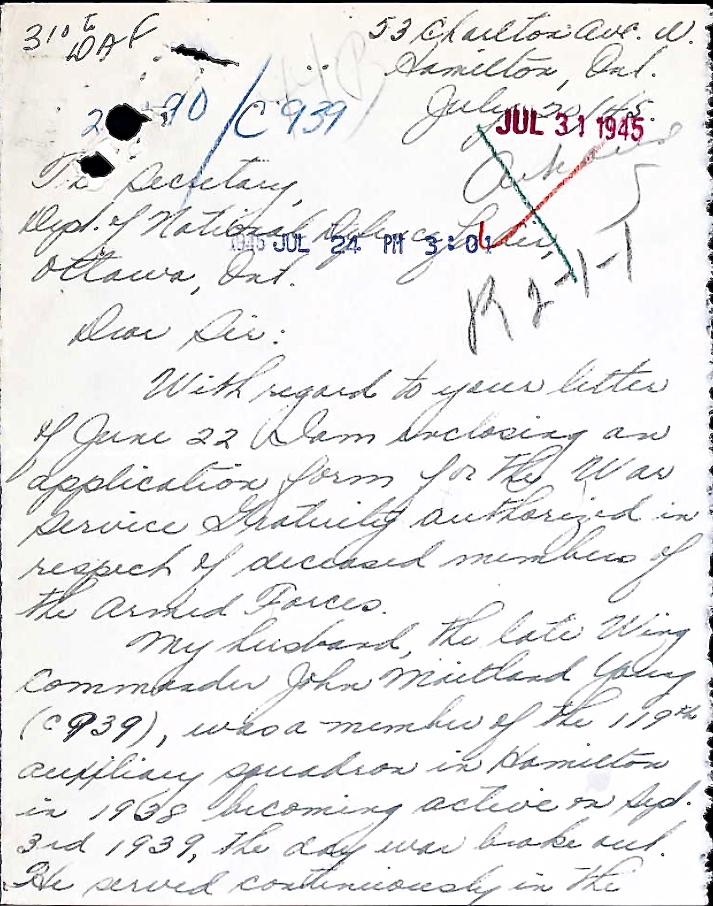 53 Charlton Ave. W.
Hamilton, Ont.
July 20/45.
JUL 31 1945
C 939
The Secretary,
Dept. of National Defence for Air,
JUL 24 PM 3:01
Ottawa, Ont.
R 2-1-1
Dear Sir:
With regard to your letter
of June 22 I am enclosing an
application form for the War
Service Gratuity authorized in
respect of deceased members of
the Armed Forces.
My husband, the late Wing
Commander John Maitland Young
(C939), was a member of the 119th
auxiliary squadron in Hamilton
in 1938 becoming active on Sept.
3rd 1939, the day war broke out.
He served continuously in the